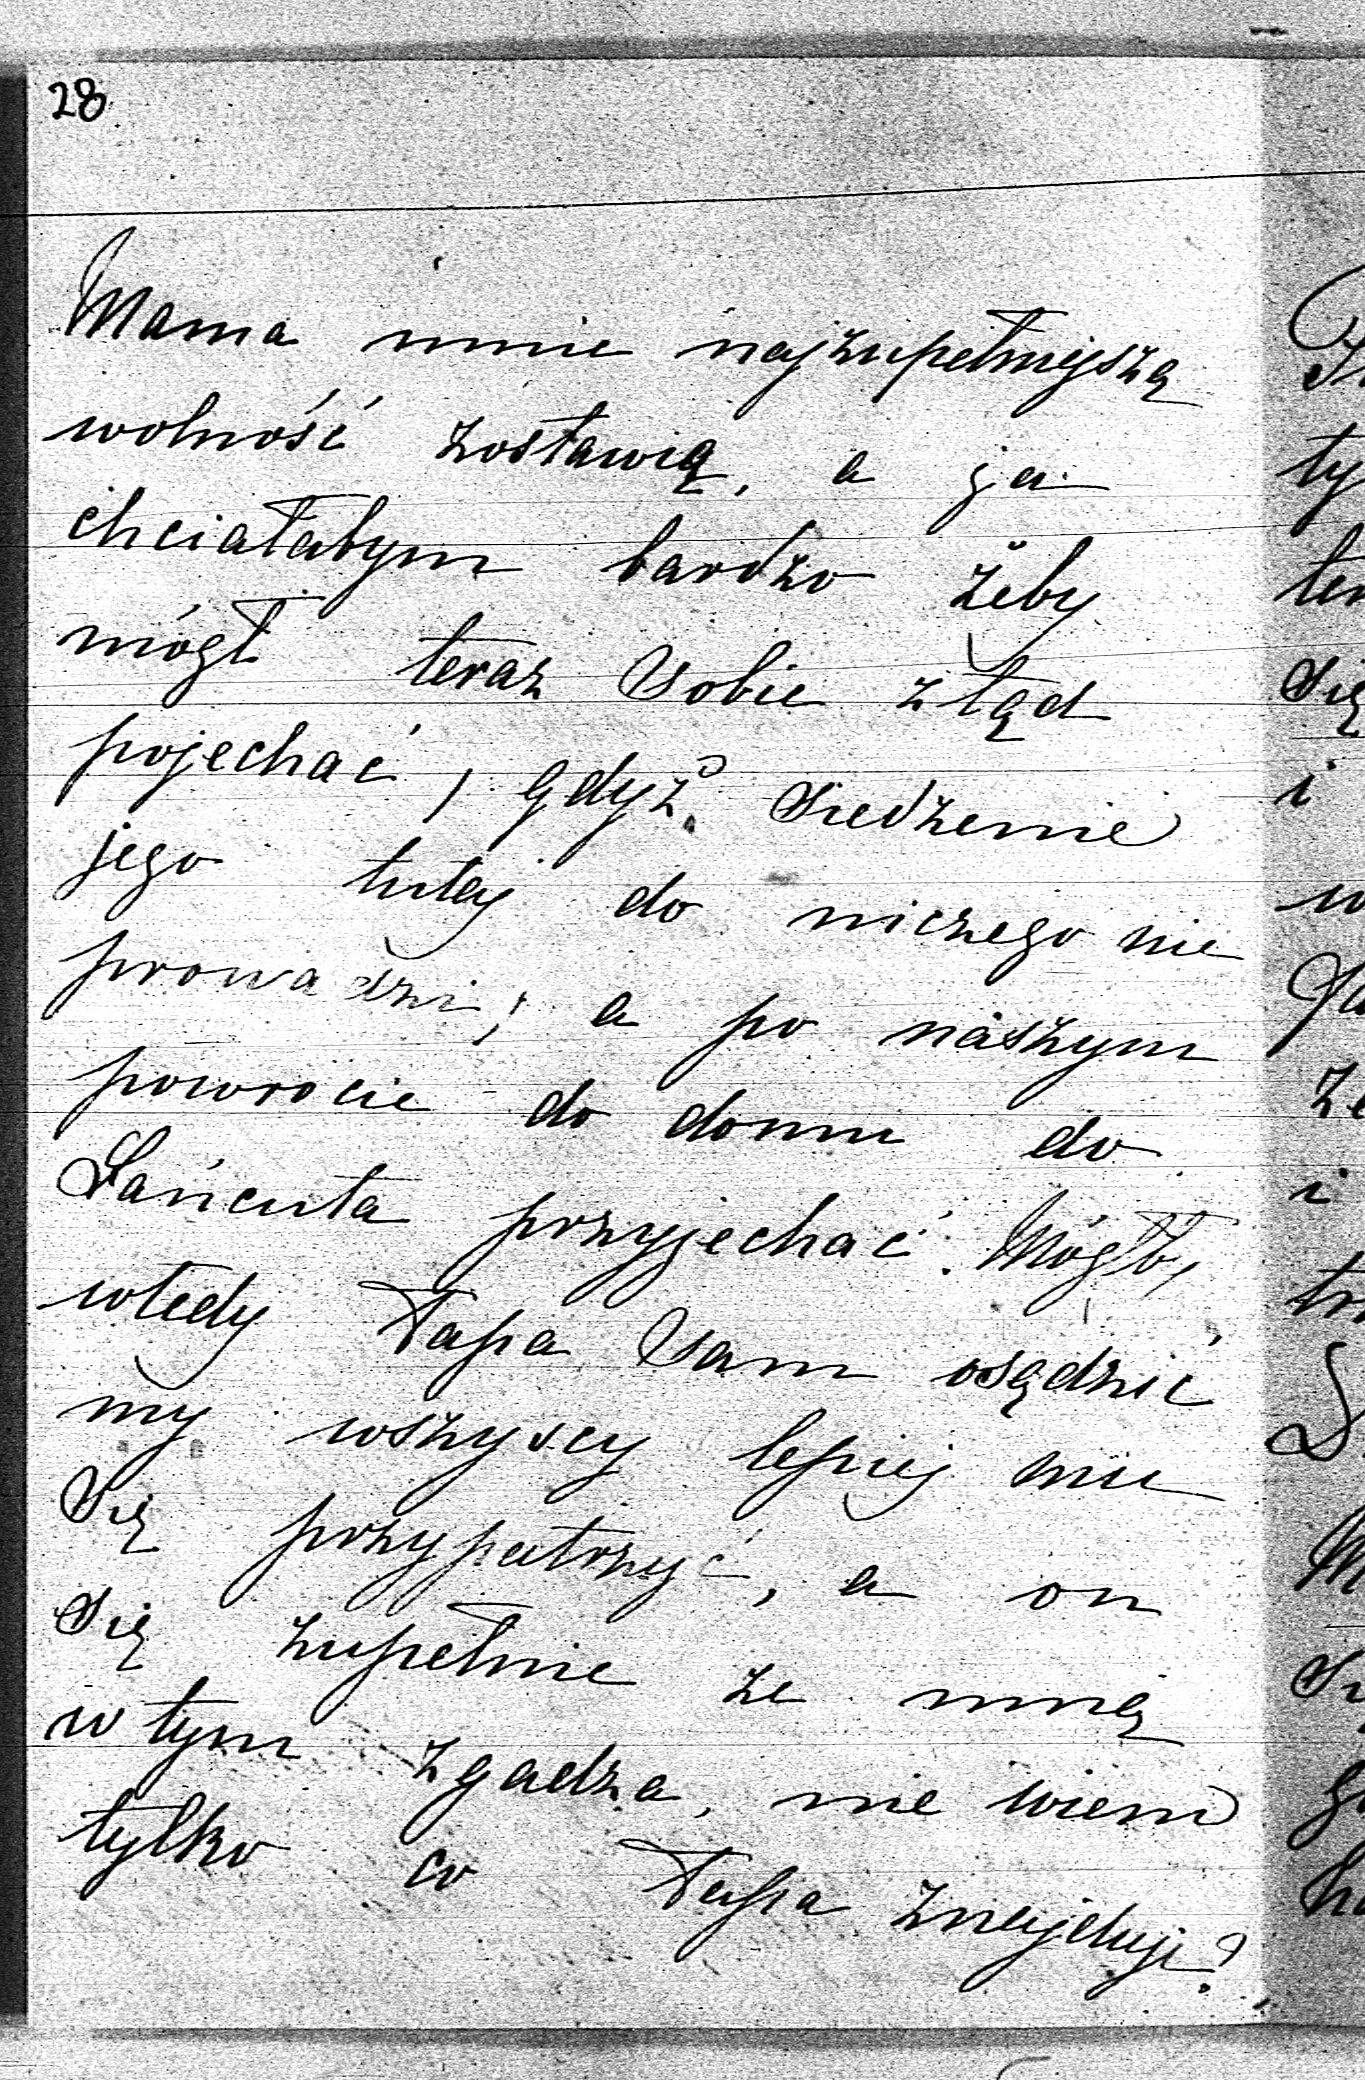 28
Mama mnie najzupełniejszą
wolność zostawią, a ja
chciałabym bardzo żeby
mógł teraz sobie ztąd
pojechać, gdyż siedzenie
jego tutej do niczego nie
prowadzi, a po naszym
powrocie do domu do
Łańcuta przyjechać. Mógłby
wtedy Papa sam osądzić
my wszyscy lepiej mu
się przypatrzyć, a on
się zupełnie ze mną
w tym zgadza, nie wiem
tylko co Papa znajduje?